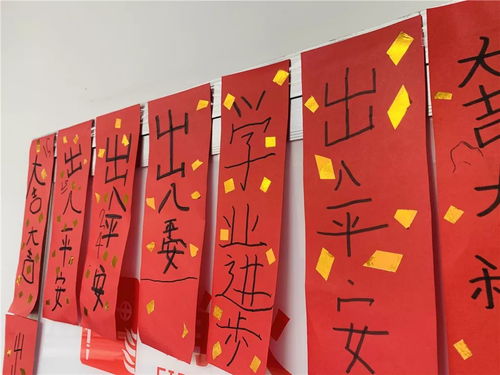 大吉大
出入平安
出入平安
出入平安
学业進步
出入平安
大吉大利
出